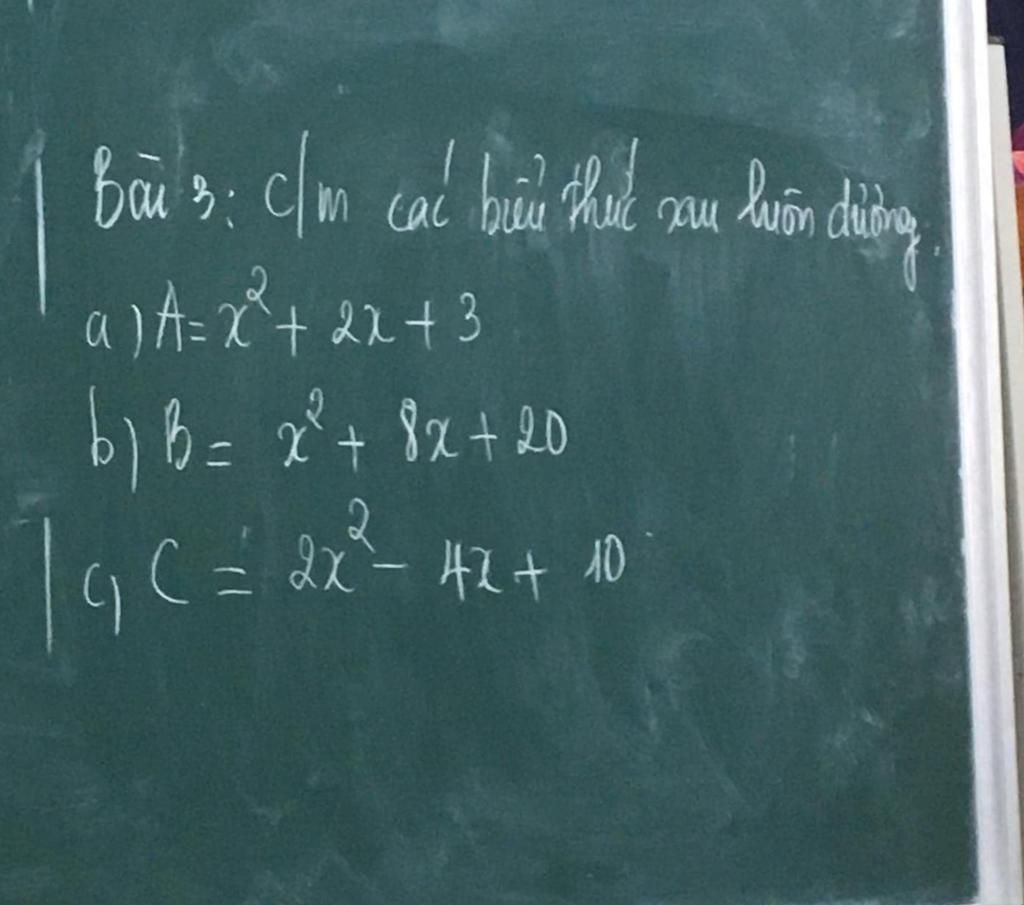 Bài 3: c/m các biểu thức sau luôn dương.
a) A = x² + 2x + 3
b) B = x² + 8x + 20
c) C = 2x² - 4x + 10